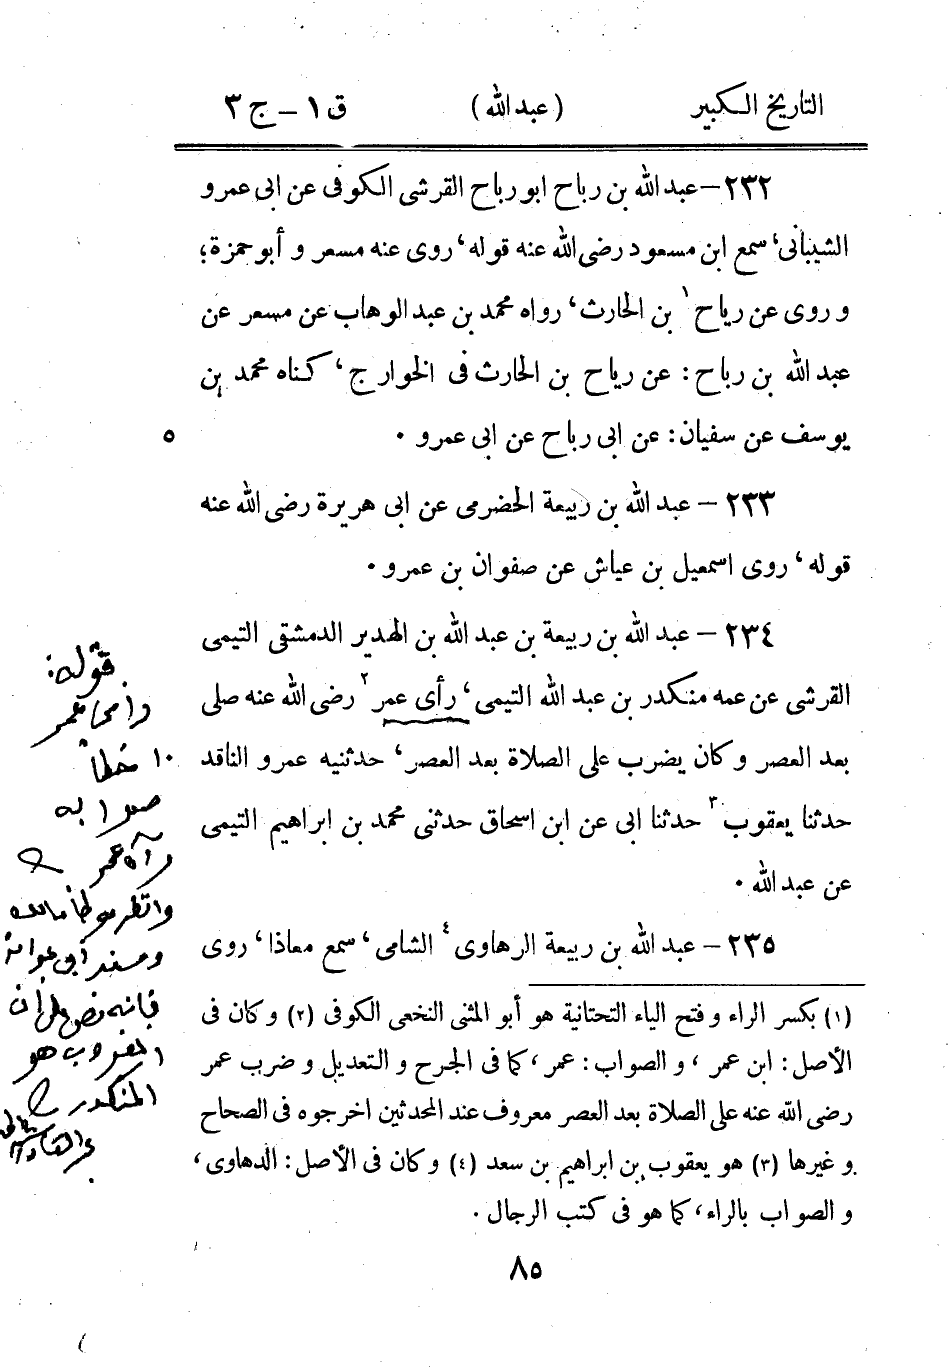 التاريخ الكبير (عبد الله) ق ١ – ج ٣
٢٣٢ – عبد الله بن رباح ابو رباح القرشى الكوفى عن ابى عمرو
الشيبانى‘ سمع ابن مسعود رضى الله عنه قوله‘ روى عنه مسعر و أبو حمزة؛
و روى عن رياح ١ بن الحارث‘ رواه محمد بن عبد الوهاب عن مسعر عن
عبد الله بن رباح: عن رياح بن الحارث فى الخوارج‘ كناه محمد بن
يوسف عن سفيان: عن ابى رباح عن ابى عمرو ٠ ٥
٢٣٣ – عبد الله بن ربيعة الحضرمى عن ابى هريرة رضى الله عنه
قوله‘ روى اسمعيل بن عياش عن صفوان بن عمرو ٠
٢٣٤ – عبد الله بن ربيعة بن عبد الله بن الهدير الدمشقى التيمى
القرشى عن عمه منكدر بن عبد الله التيمى‘ رأى عمر ٢ رضى الله عنه صلى
بعد العصر و كان يضرب على الصلاة بعد العصر‘ حدثنيه عمرو الناقد ١٠
حدثنا يعقوب ٣ حدثنا ابى عن ابن اسحاق حدثنى محمد بن ابراهيم التيمى
عن عبد الله ٠
٢٣٥ – عبد الله بن ربيعة الرهاوى ٤ الشامى‘ سمع معاذا‘ روى
(١) بكسر الراء و فتح الياء التحتانية هو أبو المثنى النخعى الكوفى (٢) و كان فى
الأصل: ابن عمر، و الصواب: عمر، كما فى الجرح و التعديل و ضرب عمر
رضى الله عنه على الصلاة بعد العصر معروف عند المحدثين اخرجوه فى الصحاح
و غيرها (٣) هو يعقوب بن ابراهيم بن سعد (٤) و كان فى الأصل: الدهاوى،
و الصواب بالراء، كما هو فى كتب الرجال ٠
٨٥
قوله:
عمر
خطأ
صوابه
رآه عمر
وانظر موطأ مالك
ومسند أبي عوانة
فإنه نص على أن
المضروب هو
المنكدر